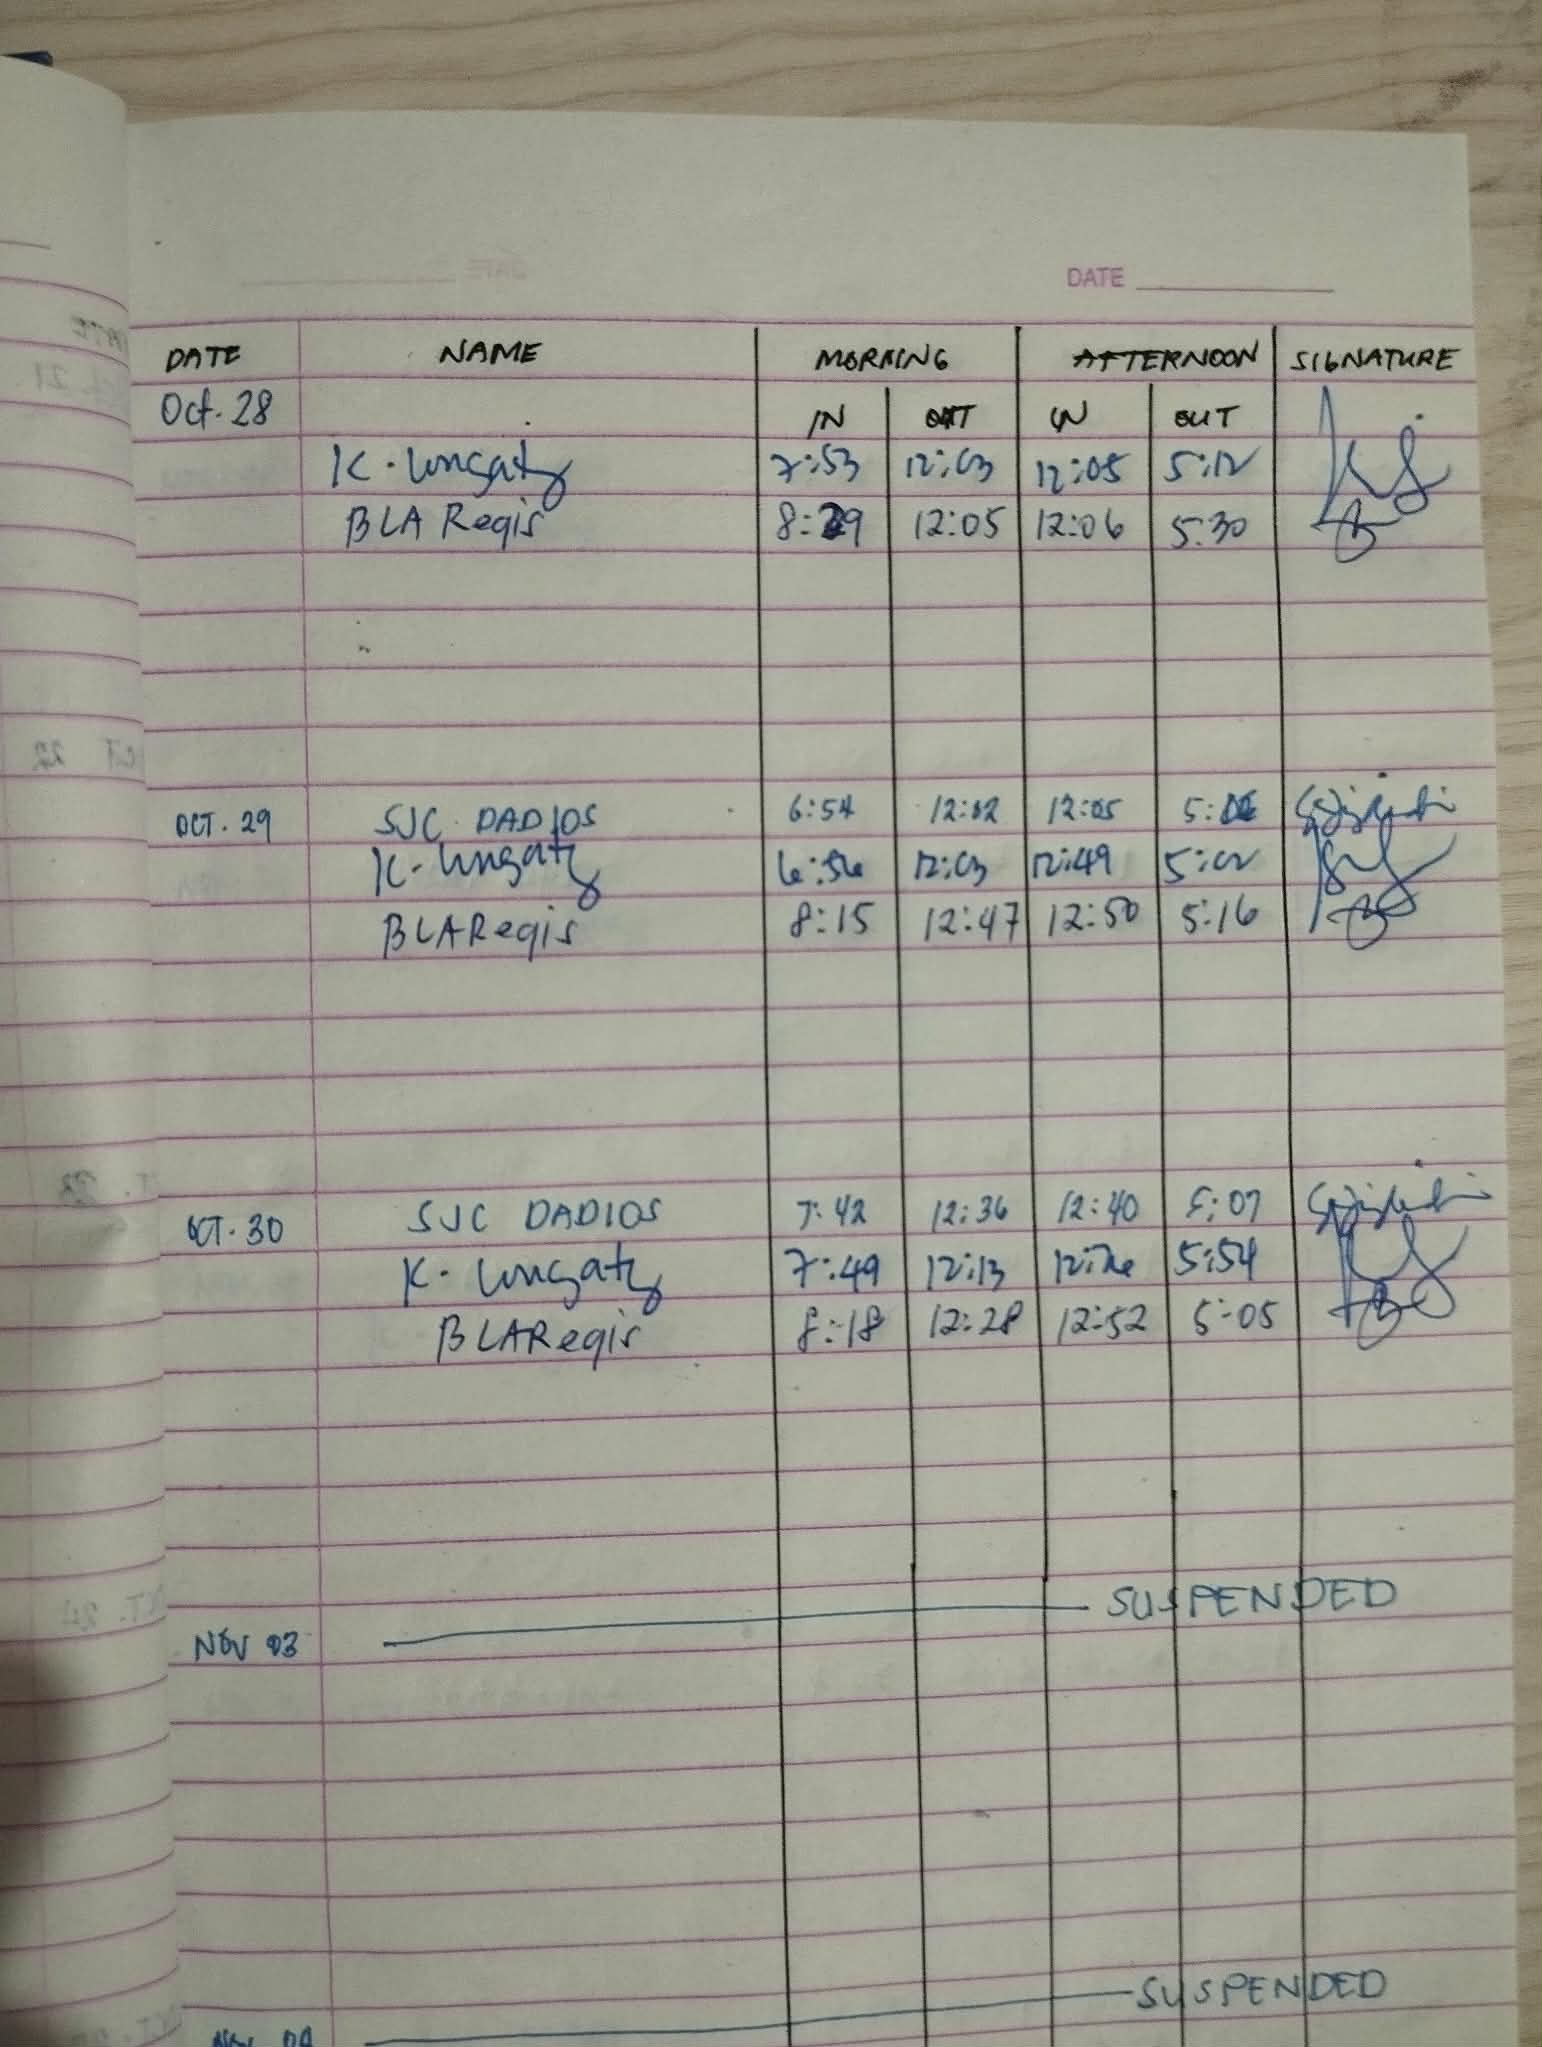 DATE
DATE NAME MORNING AFTERNOON SIGNATURE
Oct. 28 IN OUT IN OUT
K. 7:53 12:03 12:05 5:12
BLA Regis 8:29 12:05 12:06 5:30
OCT. 29 SJC DADIOS 6:54 12:02 12:05
K. 6:56 12:03 12:49 5:02
BLARegis 8:15 12:47 12:50 5:16
OCT. 30 SJC DADIOS 7:42 12:36 12:40 5:07
K. 7:49 12:13 5:54
BLARegis 8:18 12:28 12:52 5:05
SUSPENDED
NOV 03
SUSPENDED